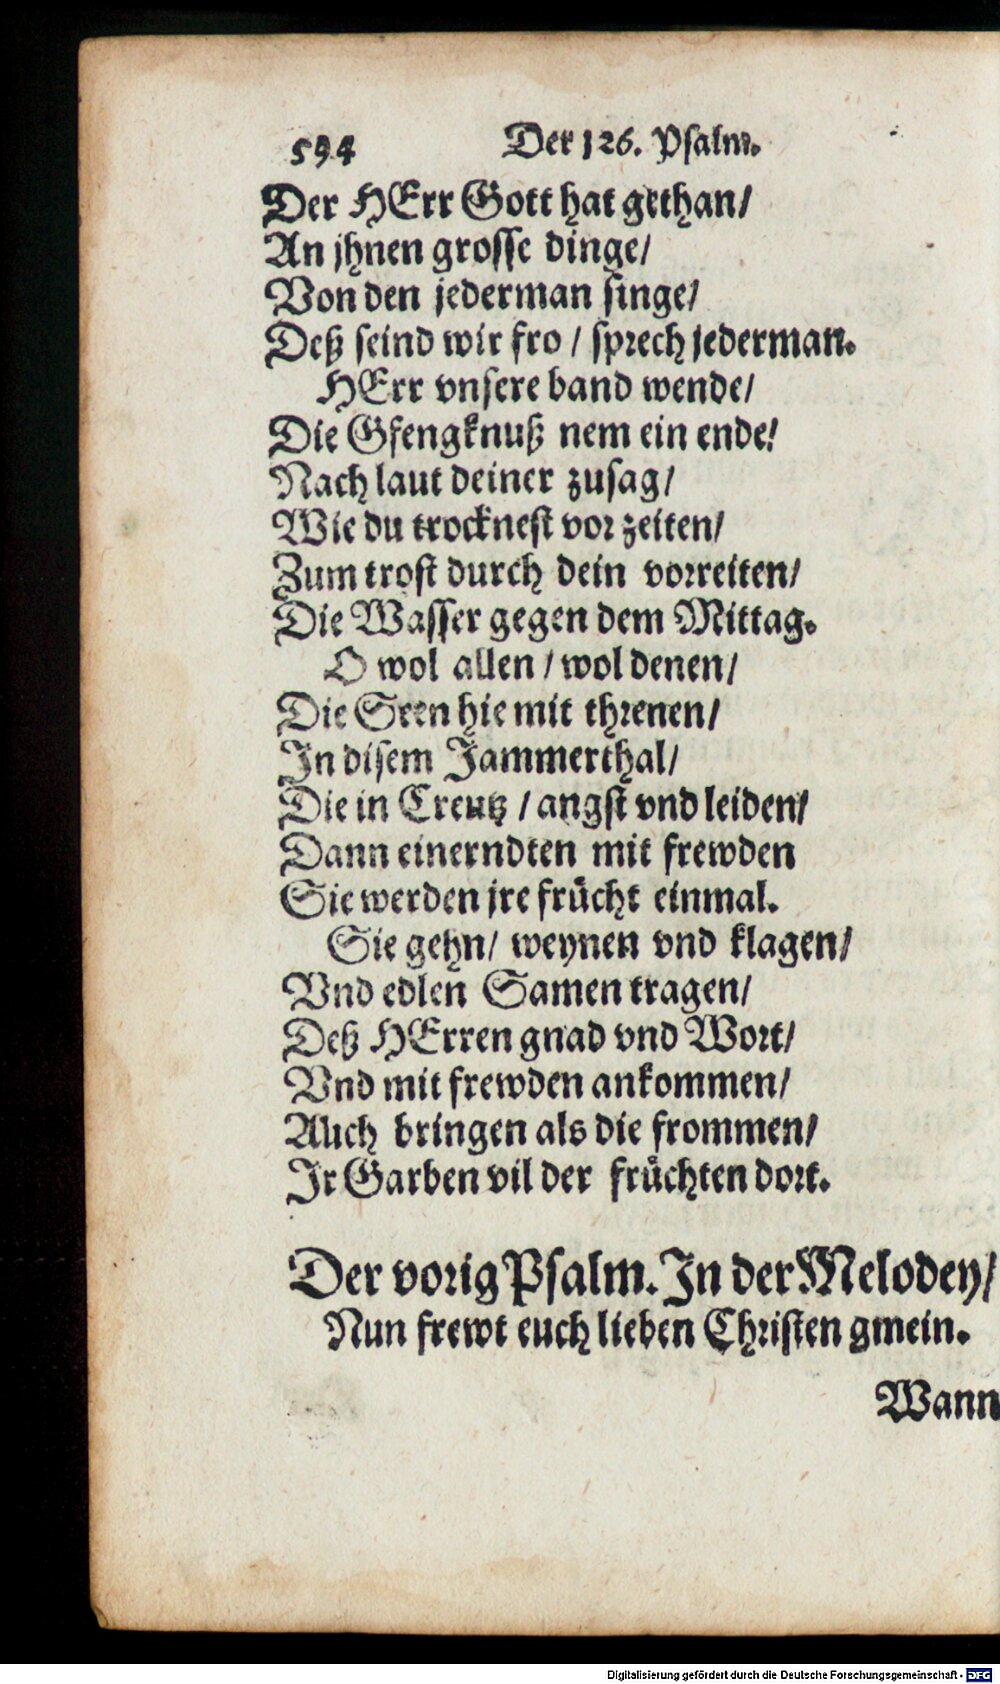 594 Der 126. Psalm.
Der HErr Gott hat gethan/
An jhnen grosse dinge/
Von den jederman singe/
Deß seind wir fro / sprech jederman.
HErr vnsere band wende/
Die Gfengknuß nem ein ende/
Nach laut deiner zusag/
Wie du trocknest vor zeiten/
Zum trost durch dein vorreiten/
Die Wasser gegen dem Mittag.
O wol allen / wol denen/
Die Seen hie mit threnen/
In disem Jammerthal/
Die in Creutz / angst vnd leiden/
Dann einerndten mit frewden
Sie werden jre frücht einmal.
Sie gehn/ weynen vnd klagen/
Vnd edlen Samen tragen/
Deß HErren gnad vnd Wort/
Vnd mit frewden ankommen/
Auch bringen als die frommen/
Ir Garben vil der früchten dort.
Der vorig Psalm. In der Melodey/
Nun frewt euch lieben Christen gmein.
Wann
Digitalisierung gefördert durch die Deutsche Forschungsgemeinschaft - DFG